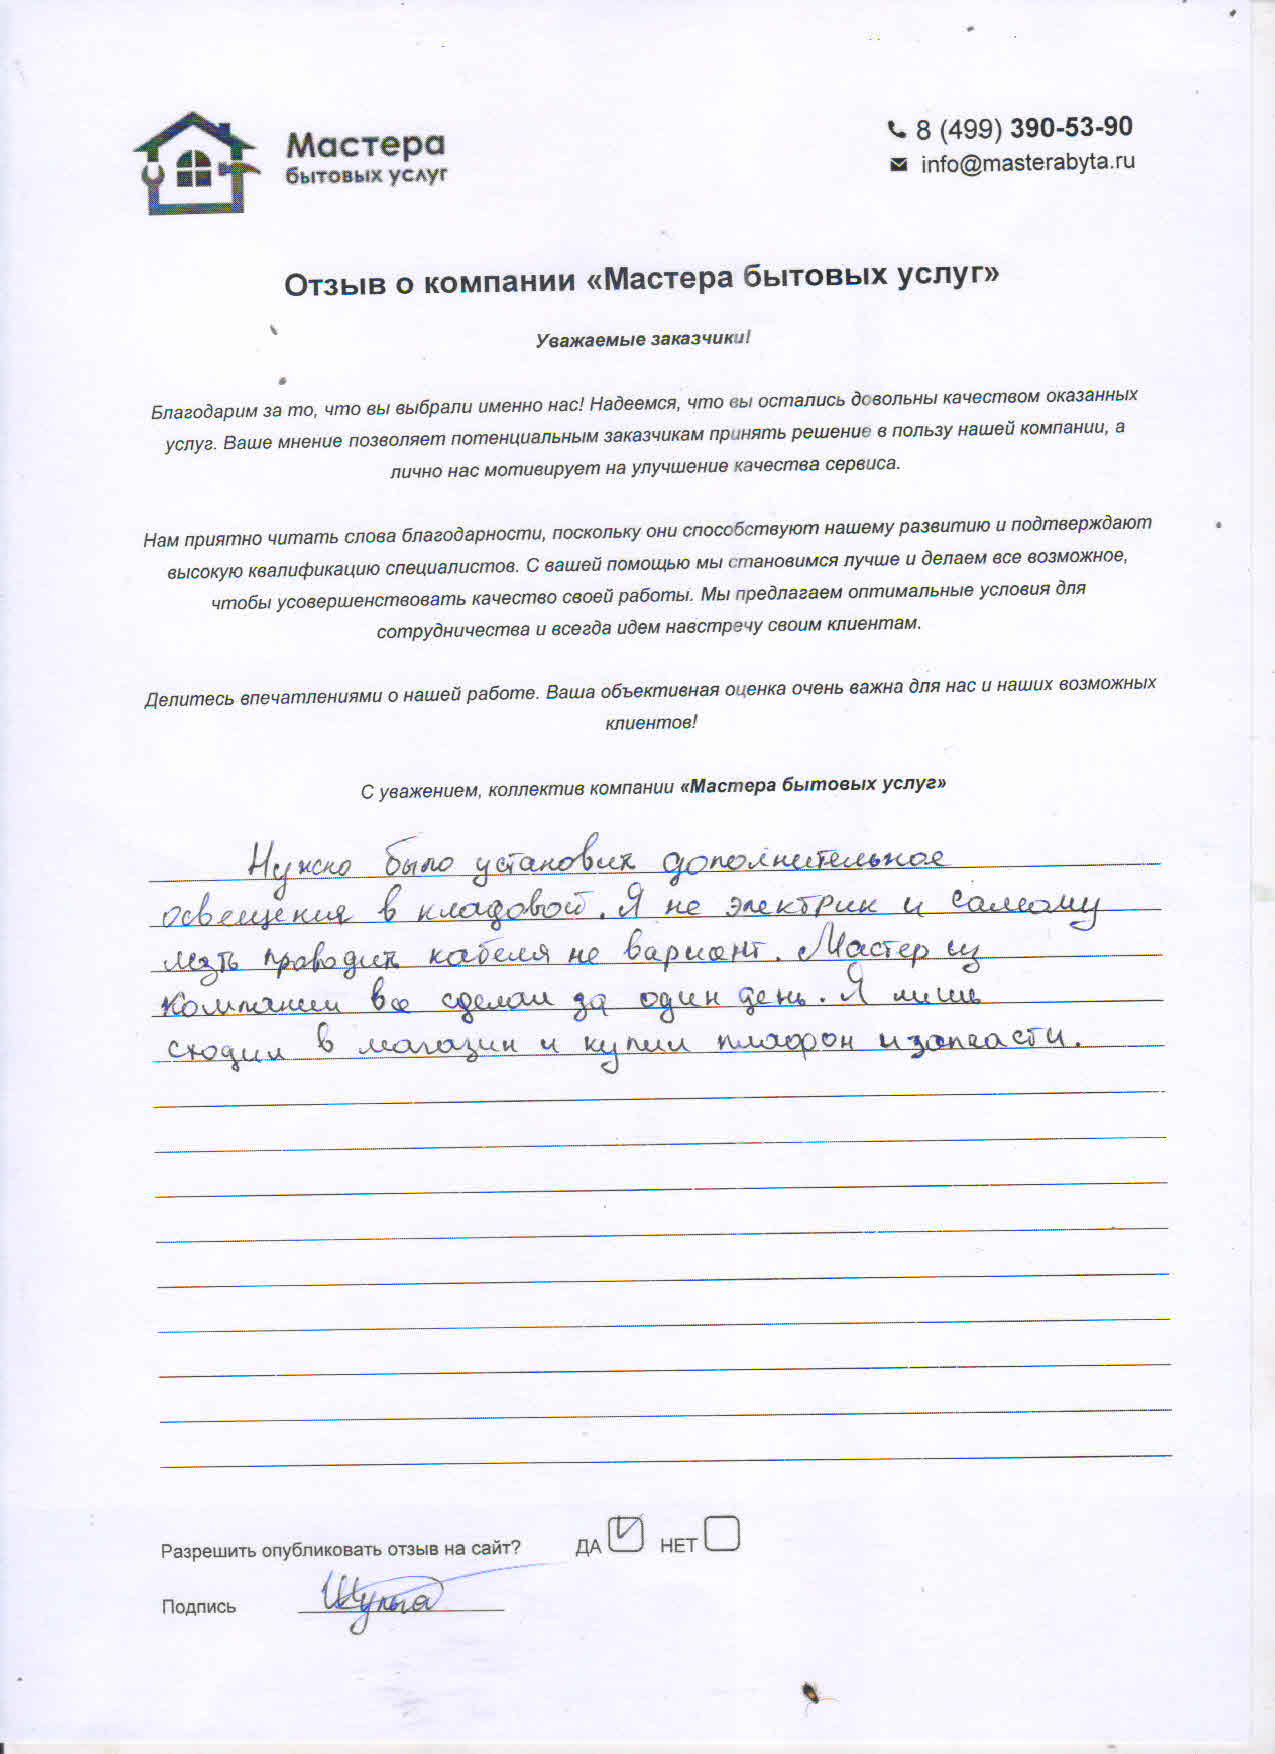 Мастера
бытовых услуг
8 (499) 390-53-90
info@masterabyta.ru
Отзыв о компании «Мастера бытовых услуг»
Уважаемые заказчики!
Благодарим за то, что вы выбрали именно нас! Надеемся, что вы остались довольны качеством оказанных
услуг. Ваше мнение позволяет потенциальным заказчикам принять решение в пользу нашей компании, а
лично нас мотивирует на улучшение качества сервиса.
Нам приятно читать слова благодарности, поскольку они способствуют нашему развитию и подтверждают
высокую квалификацию специалистов. С вашей помощью мы становимся лучше и делаем все возможное,
чтобы усовершенствовать качество своей работы. Мы предлагаем оптимальные условия для
сотрудничества и всегда идем навстречу своим клиентам.
Делитесь впечатлениями о нашей работе. Ваша объективная оценка очень важна для нас и наших возможных
клиентов!
С уважением, коллектив компании «Мастера бытовых услуг»
Нужно было установить дополнительное
освещения в кладовой. Я не электрик и самому
проводить кабеля не вариант. Мастер из
компании все сделал за один день. Я лишь
сходил в магазин и купил плафон и запчасти.
Разрешить опубликовать отзыв на сайт? ДА НЕТ
Подпись